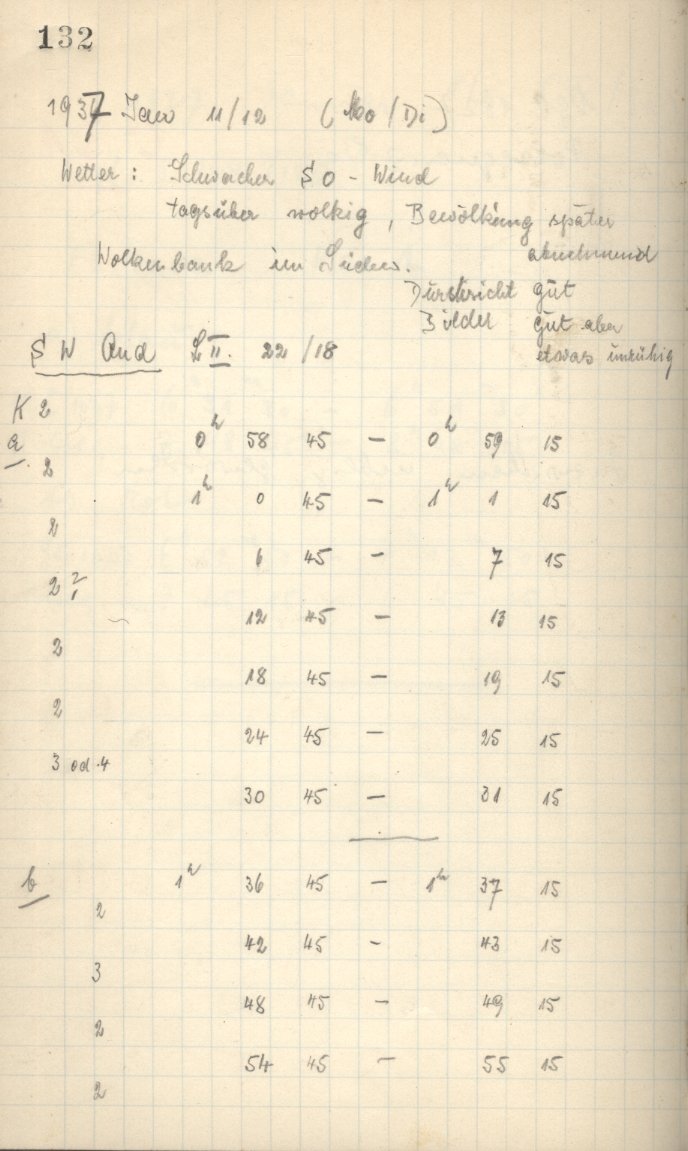 132
1937 Jan 11/12 (Mo/Di)
Wetter: Schwacher SO-Wind
tagsüber wolkig, Bewölkung später
abnehmend
Wolkenbank im Süden.
Durchsicht gut
Bilder gut aber
etwas unruhig
SW And L II. 22/18
K 2
a 0h 58 45 – 0h 59 15
2
1h 0 45 – 1h 1 15
2
6 45 – 7 15
2?
12 45 – 13 15
2
18 45 – 19 15
2
24 45 – 25 15
3 od. 4
30 45 – 31 15
b 1h 36 45 – 1h 37 15
2
42 45 – 43 15
3
48 45 – 49 15
2
54 45 – 55 15
2